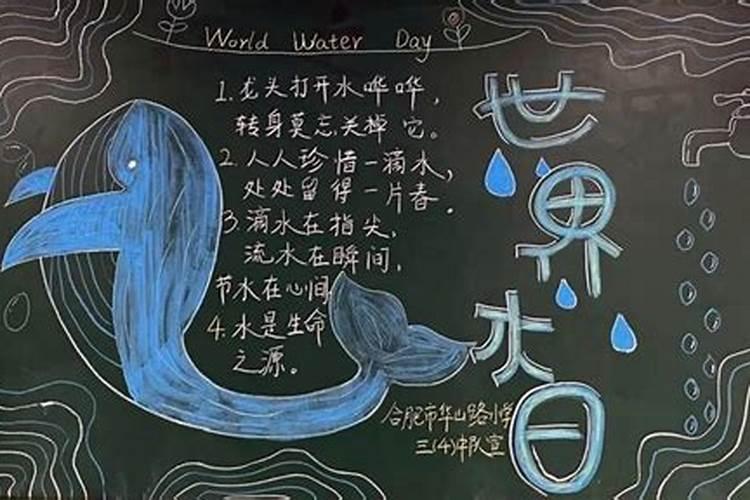 World Water Day
1.龙头打开水哗哗,
转身莫忘关掉它。
2.人人珍惜一滴水,
处处留得一片春.
3.滴水在指尖,
流水在瞬间,
节水在心间
4.水是生命
之源。
世界水日
合肥市华山路小学
三(4)中队宣